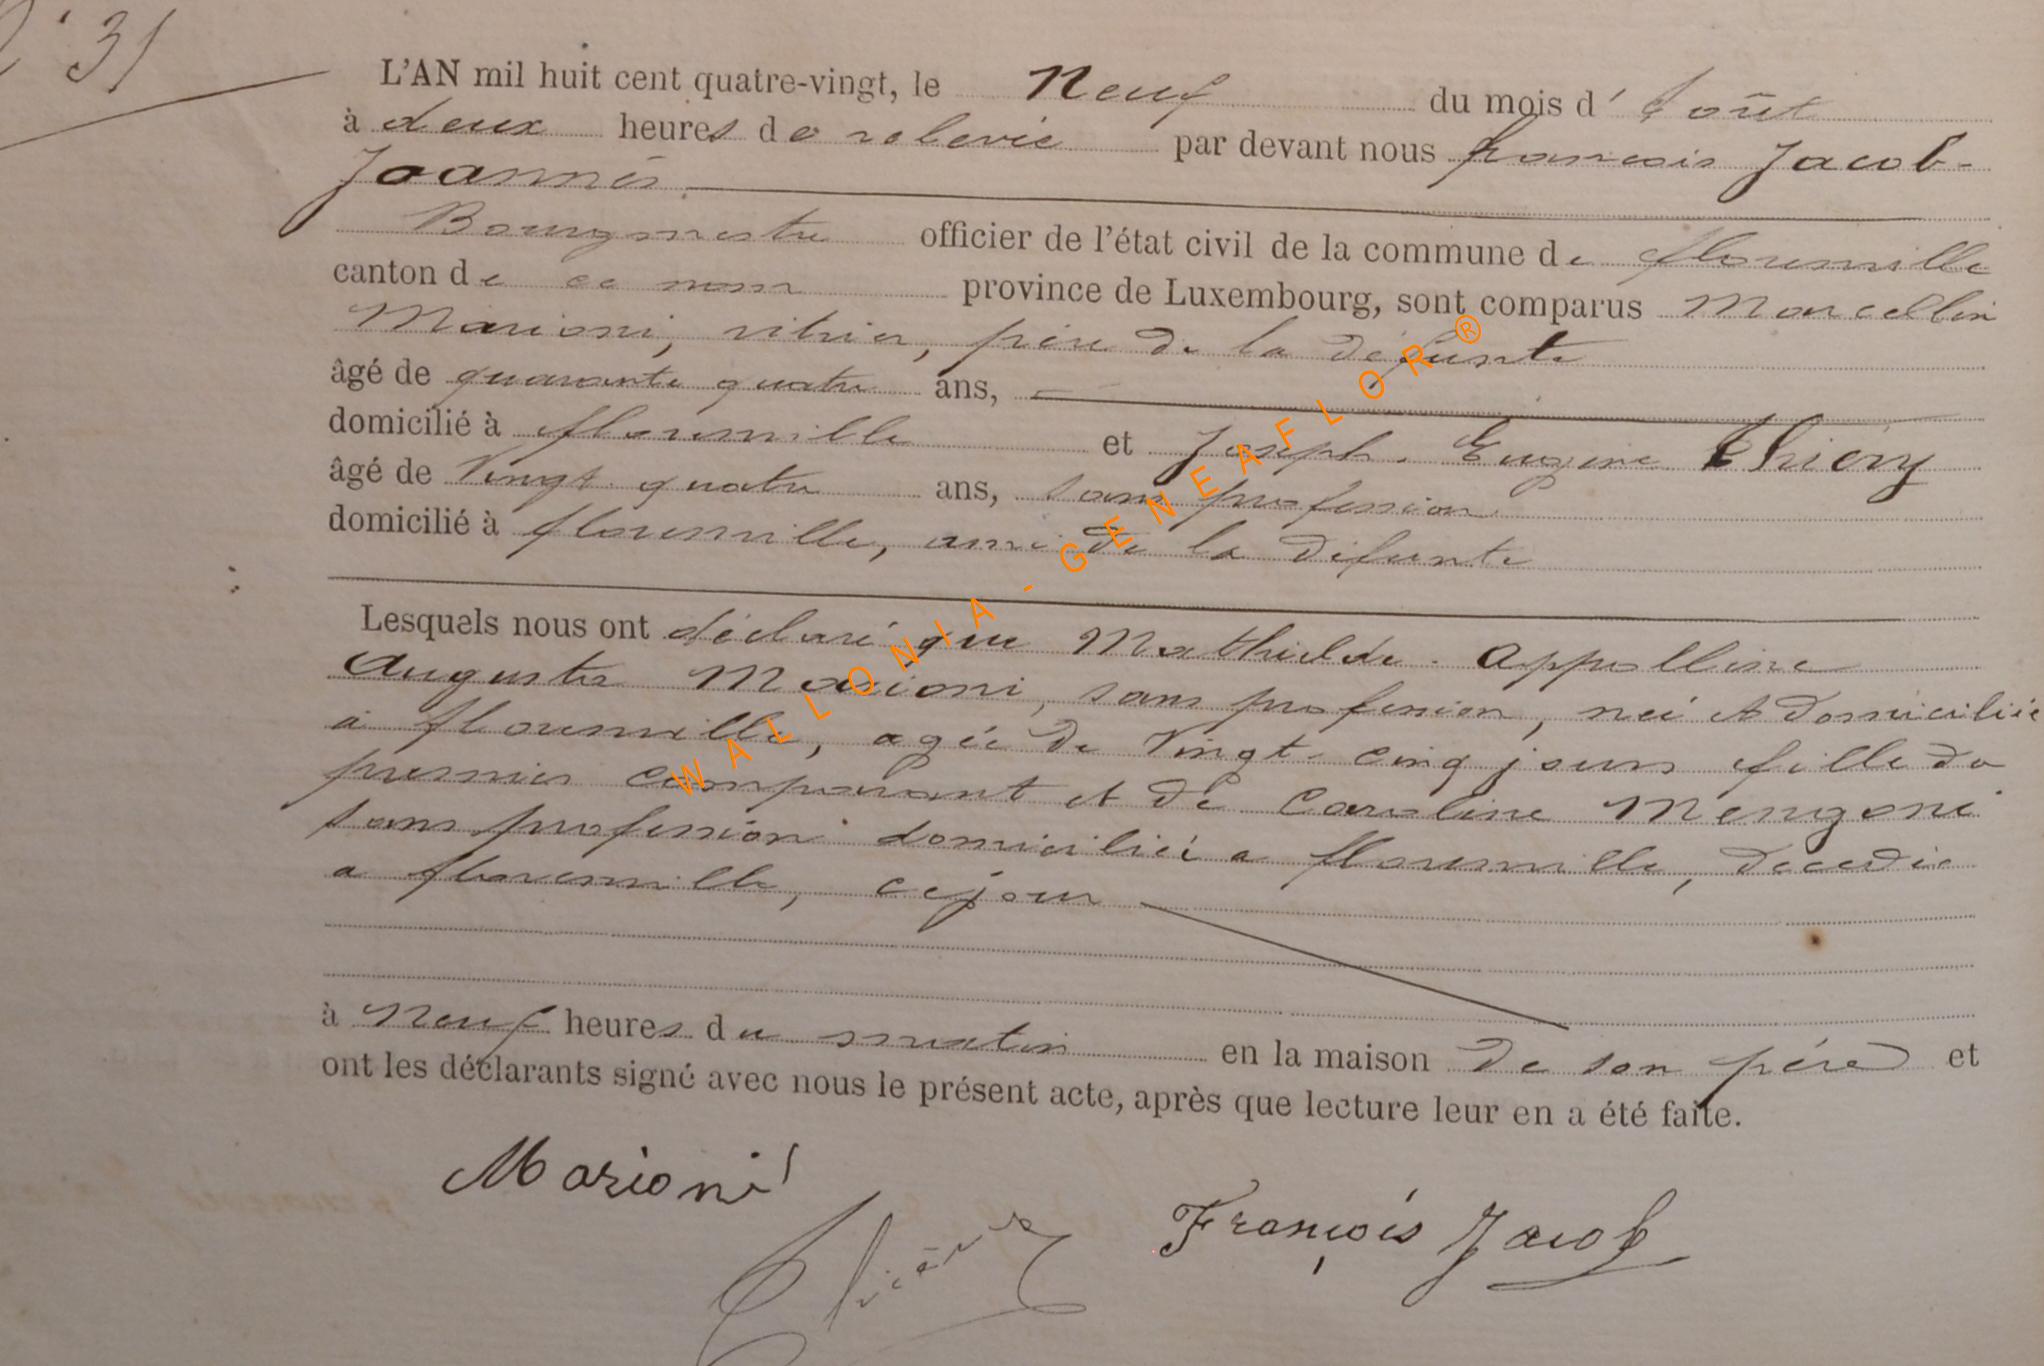 N° 31
L'AN mil huit cent quatre-vingt, le Neuf du mois d' août
à deux heures de relevée par devant nous françois Jacob-
Joannès
Bourgmestre officier de l'état civil de la commune de florenville
canton de ce nom province de Luxembourg, sont comparus Marcellin
Marioni, vitrier, père de la défunte
âgé de quarante quatre ans,
domicilié à florenville et Joseph. Eugène Thiéry
âgé de Vingt quatre ans, sans profession
domicilié à florenville, ami de la défunte
Lesquels nous ont déclaré que Mathielde. Appolline
Auguste Marioni, sans profession, née et domiciliée
à florenville, agée de Vingt-cinq jours fille du
premier comparant et de Caroline Mengoni
sans profession domiciliée a florenville, décédée
a florenville, cejour
à Neuf heures du matin en la maison de son père et
ont les déclarants signé avec nous le présent acte, après que lecture leur en a été faite.
Marioni
Thiéry
François Jacob
WALLONIA-GENEAFLOR®